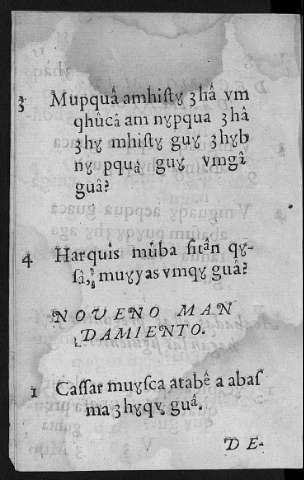 3 Mupquâ amhistɣ ʒhâ ỹm
qhûcâ am nɣpqua ʒhâ
ʒhɣ mhistɣ guɣ ʒhɣb
nɣ pquâ guɣ vmgâ
guâ?
4 Harquîs mûba sitân qɣ-
sâ, muɣyas vmqɣ guâ?
NOVENO MAN
DAMIENTO.
1 Cassar muɣsca atabê a abas
ma ʒhɣqɣ guâ.
DE-